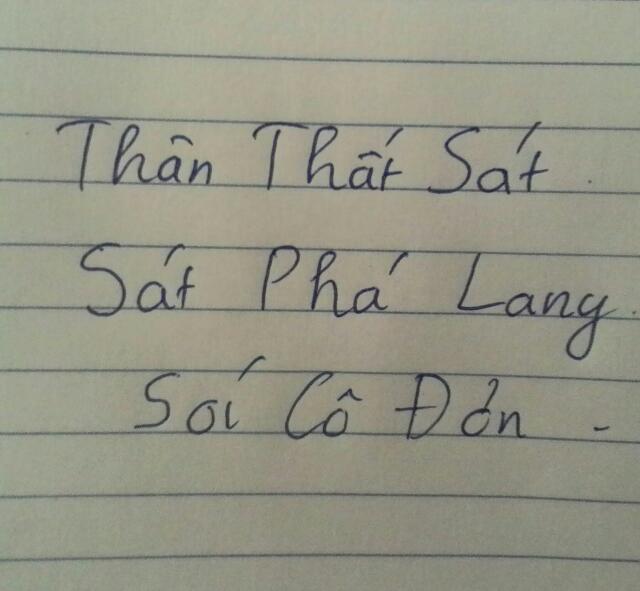 Thân Thất Sát.
Sát Phá Lang.
Sói Cô Đơn -